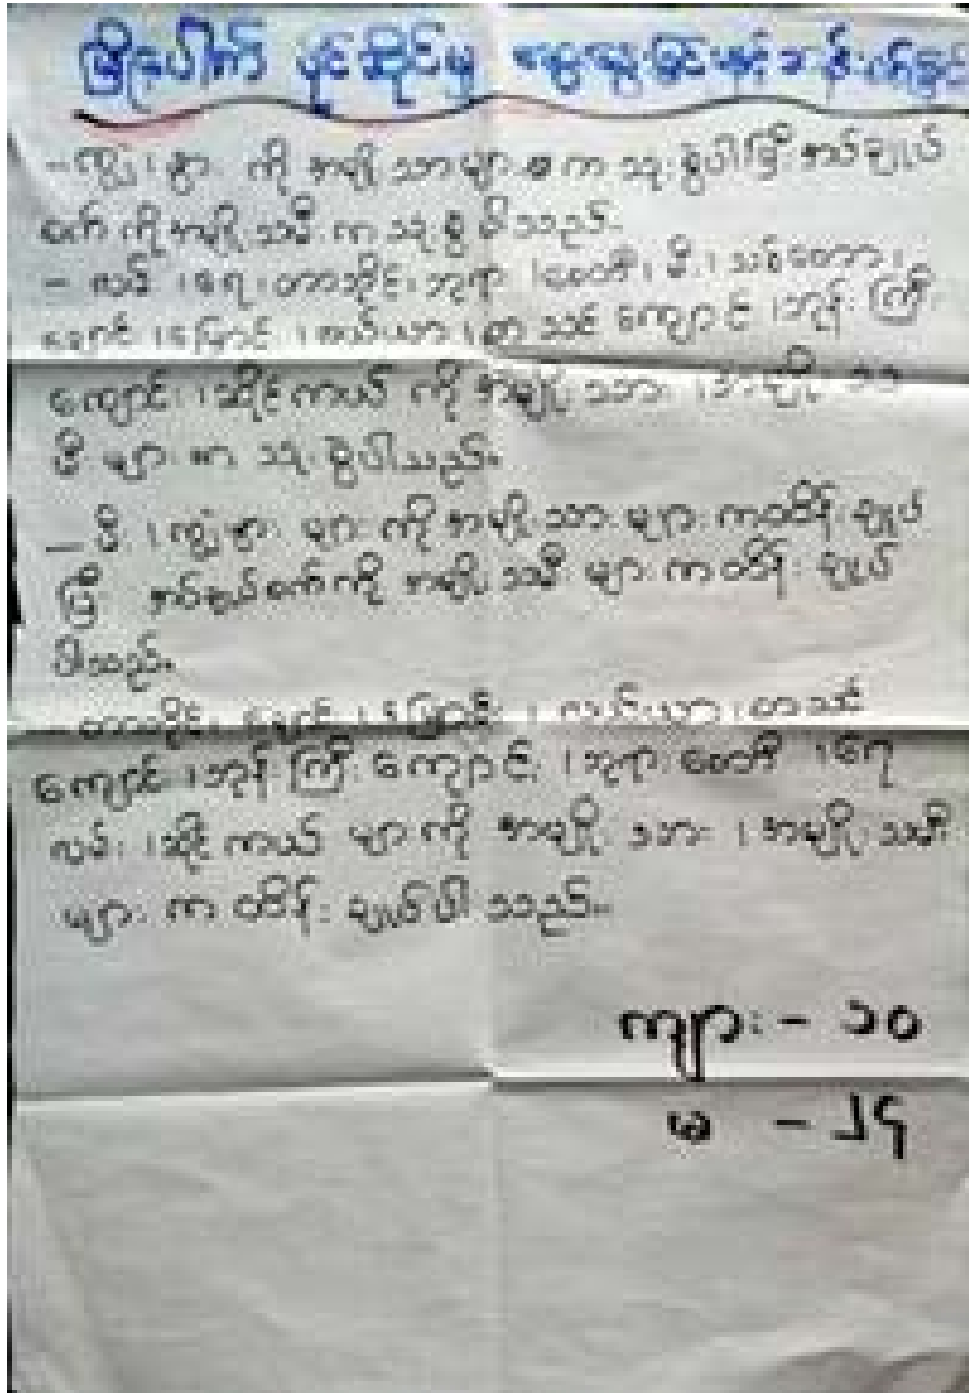 ပိုင်ဆိုင်မှု
- ကျွဲ၊ နွား ကို အမျိုးသားများ က သုံးစွဲပါပြီး အပ်ချုပ်
စက် ကို အမျိုးသမီး က သုံးစွဲ ပါသည်။
- လမ်း ၊ ရေ ၊ တာတိုင် ၊ ဘုရား ၊ စေတီ ၊ မီး ၊ သစ်တော ၊
ချောင်း ၊ မြောင်း ၊ လယ်ယာ ၊ စာသင်ကျောင်း ၊ ဘုန်းကြီး
ကျောင်း ၊ ဆိုင်ကယ် ကို အမျိုးသား ၊ အမျိုးသ
မီး များ က သုံးစွဲပါသည်။
- မီး ၊ ကျွဲနွား များ ကို အမျိုးသား များ က ထိန်းချုပ်
ပြီး အပ်ချုပ်စက်ကို အမျိုးသမီး များ က ထိန်း ချုပ်
ပါသည်။
- တာတိုင် ၊ ချောင်း ၊ မြောင်း ၊ လယ်ယာ ၊ စာသင်
ကျောင်း ၊ ဘုန်းကြီး ကျောင်း ၊ ဘုရား စေတီ ၊ ရေ
လမ်း ၊ ဆိုင်ကယ် များကို အမျိုးသား ၊ အမျိုးသမီး
များ က ထိန်း ချုပ်ပါသည်။
ကျား - ၁၀
မ - ၂၄